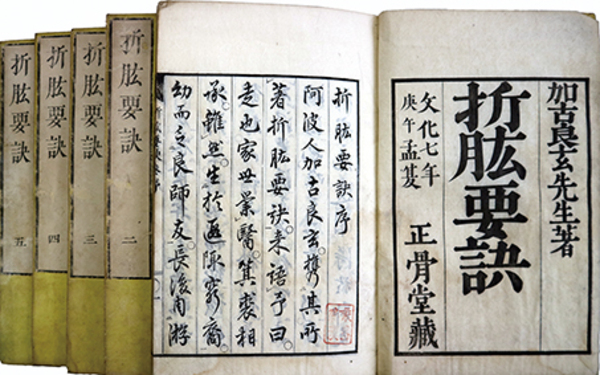 加古良玄先生著
折肱要訣
文化七年
庚午孟夏
正骨堂藏
折肱要訣序
阿波人加古良玄携其所
著折肱要訣来語予曰
走也家世業醫箕裘相
承雖然生於遐陬窮裔
幼而乏良師友長後自游
折肱要訣 二
折肱要訣 三
折肱要訣 四
折肱要訣 五